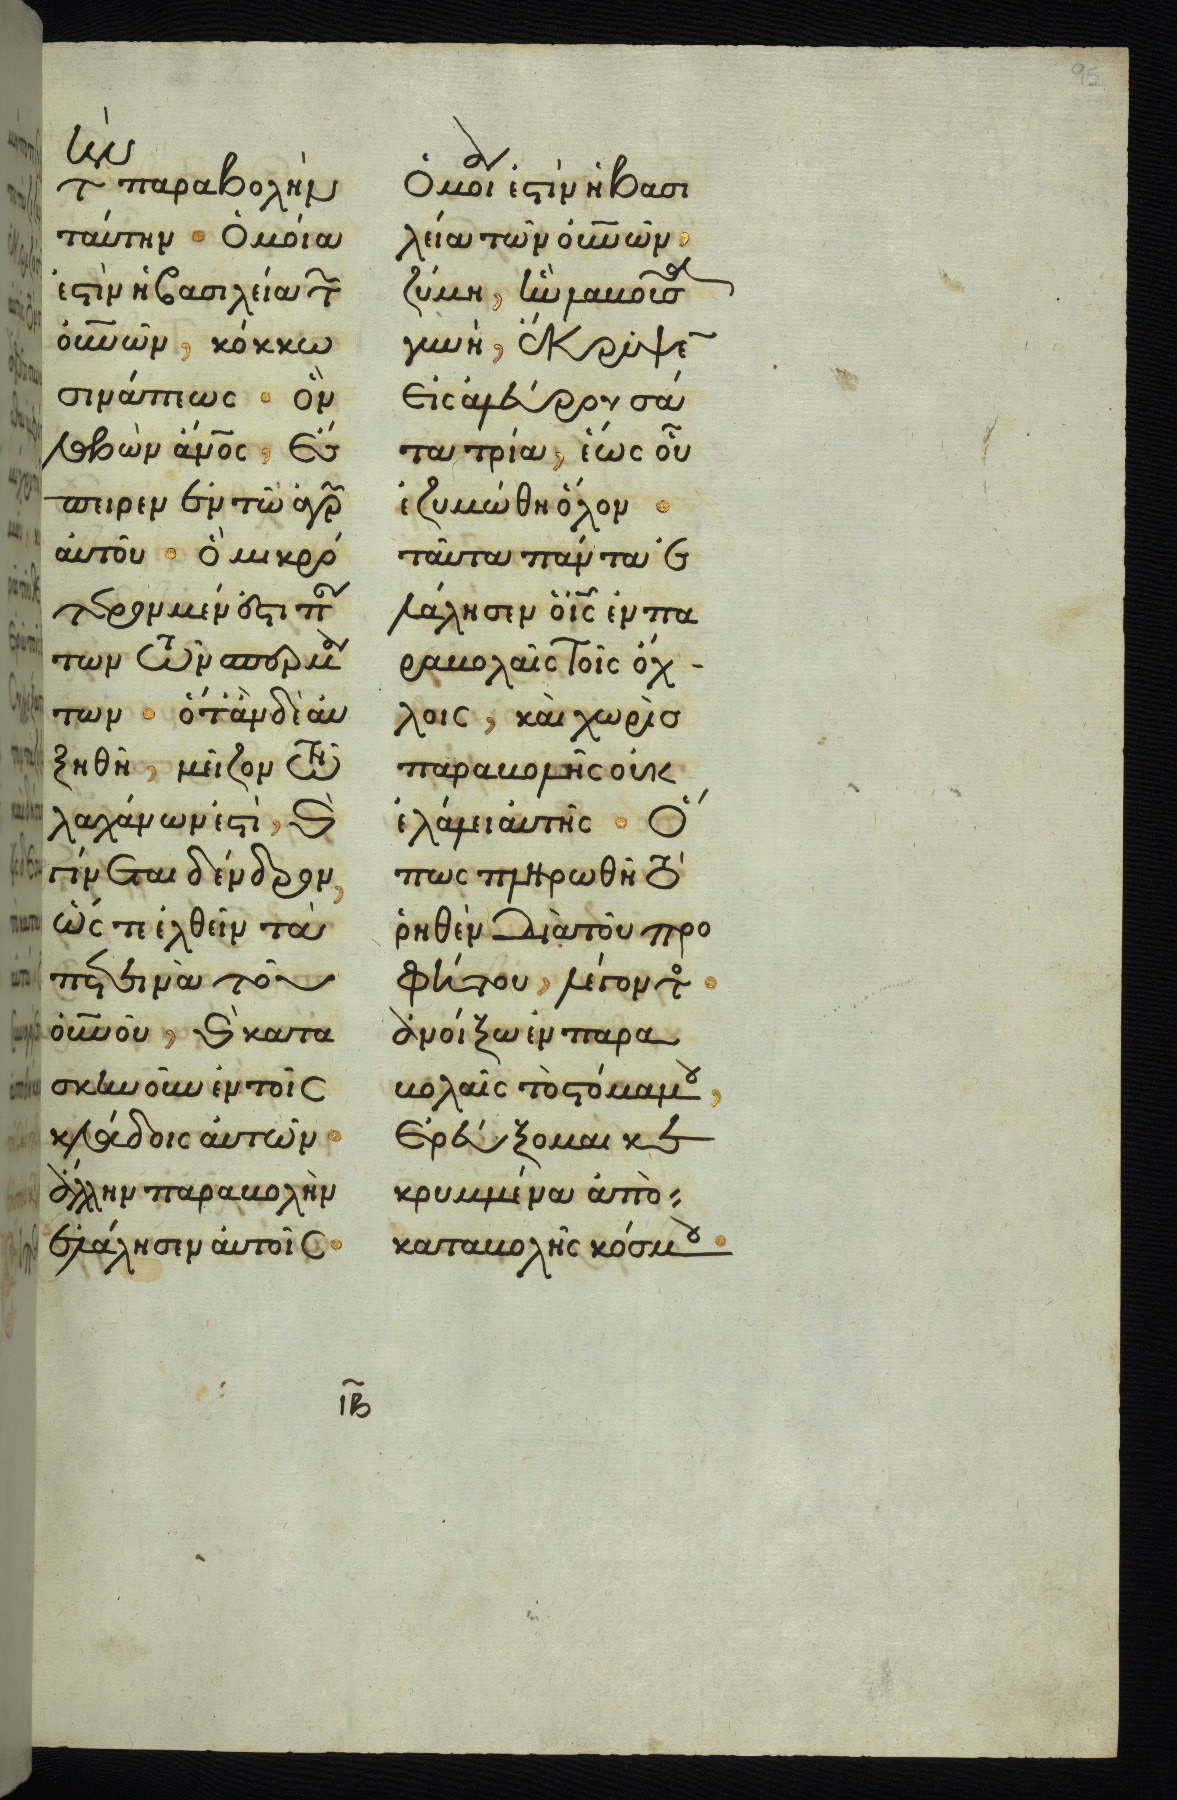 95
ὁ κς
τ παραβολὴν
ταύτην · Ὁμοία
ἐστὶν ἡ βασιλεία τ
οὐνῶν, κόκκω
σινάπεως · ὃν
λαβὼν ἄνος, ἔ
σπειρεν ἐν τῶ ἀγρ
αὐτοῦ · ὃ μικρό
τερον μέν ἐστι πάν
των τῶν σπερμά
των · ὅταν δὲ αὐ
ξηθῆ, μεῖζον τῶν
λαχάνων ἐστὶ, κ
γίνεται δένδρον,
ὥστε ἐλθεῖν τὰ
πετεινὰ τοῦ
οὐνοῦ, κ κατα
σκηνοῦν ἐν τοῖς
κλάδοις αὐτῶν ·
ἄλλην παραβολὴν
ἐλάλησεν αὐτοῖς ·
Ὁμοία ἐστὶν ἡ βασι
λεία τῶν οὐνῶν,
ζύμη, ἣν λαβοῦσα
γυνὴ, ἔκρυψεν
εἰς ἀλεύρου σά
τα τρία, ἕως οὗ
ἐζυμώθη ὅλον ·
ταῦτα πάντα ἐ
λάλησεν ὁ ις ἐν πα
ραβολαῖς τοῖς ὄχ-
λοις, καὶ χωρὶς
παραβολῆς οὐκ
ἐλάλει αὐτοῖς · Ὅ
πως πληρωθῆ τὸ
ῥηθὲν διὰ τοῦ προ
φήτου, λέγοντος ·
ἀνοίξω ἐν παρα
βολαῖς τὸ στόμα μου,
ἐρεύξομαι κε
κρυμμένα ἀπὸ
καταβολῆς κόσμου ·
ιβ